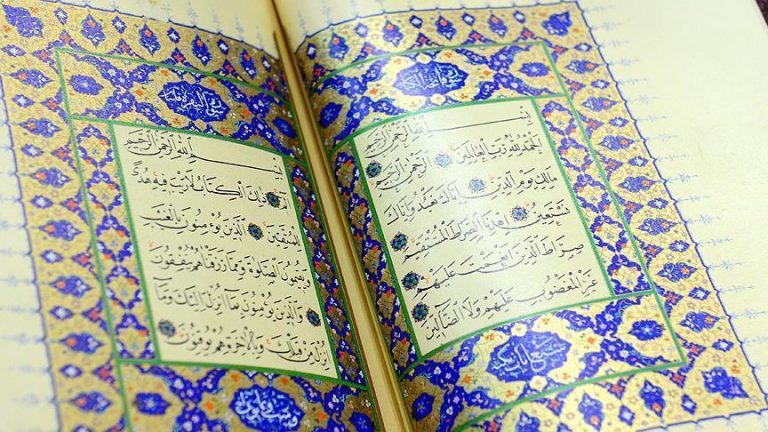 بِسْمِ اللّٰهِ الرَّحْمٰنِ الرَّحِيمِ
اَلْحَمْدُ لِلّٰهِ رَبِّ الْعَالَمِينَ الرَّحْمٰنِ الرَّحِيمِ
مَالِكِ يَوْمِ الدِّينِ اِيَّاكَ نَعْبُدُ وَاِيَّاكَ
نَسْتَعِينُ اِهْدِنَا الصِّرَاطَ الْمُسْتَقِيمَ
صِرَاطَ الَّذِينَ اَنْعَمْتَ عَلَيْهِمْ
غَيْرِ الْمَغْضُوبِ عَلَيْهِمْ وَلَا الضَّالِّينَ
سورة البقرة
بِسْمِ اللّٰهِ الرَّحْمٰنِ الرَّحِيمِ
الٓمٓ ذٰلِكَ الْكِتَابُ لَا رَيْبَ فِيهِ هُدًى
لِلْمُتَّقِينَ اَلَّذِينَ يُؤْمِنُونَ بِالْغَيْبِ
وَيُقِيمُونَ الصَّلٰوةَ وَمِمَّا رَزَقْنَاهُمْ يُنْفِقُونَ
وَالَّذِينَ يُؤْمِنُونَ بِمَا اُنْزِلَ اِلَيْكَ وَمَا
اُنْزِلَ مِنْ قَبْلِكَ وَبِالْاٰخِرَةِ هُمْ يُوقِنُونَ